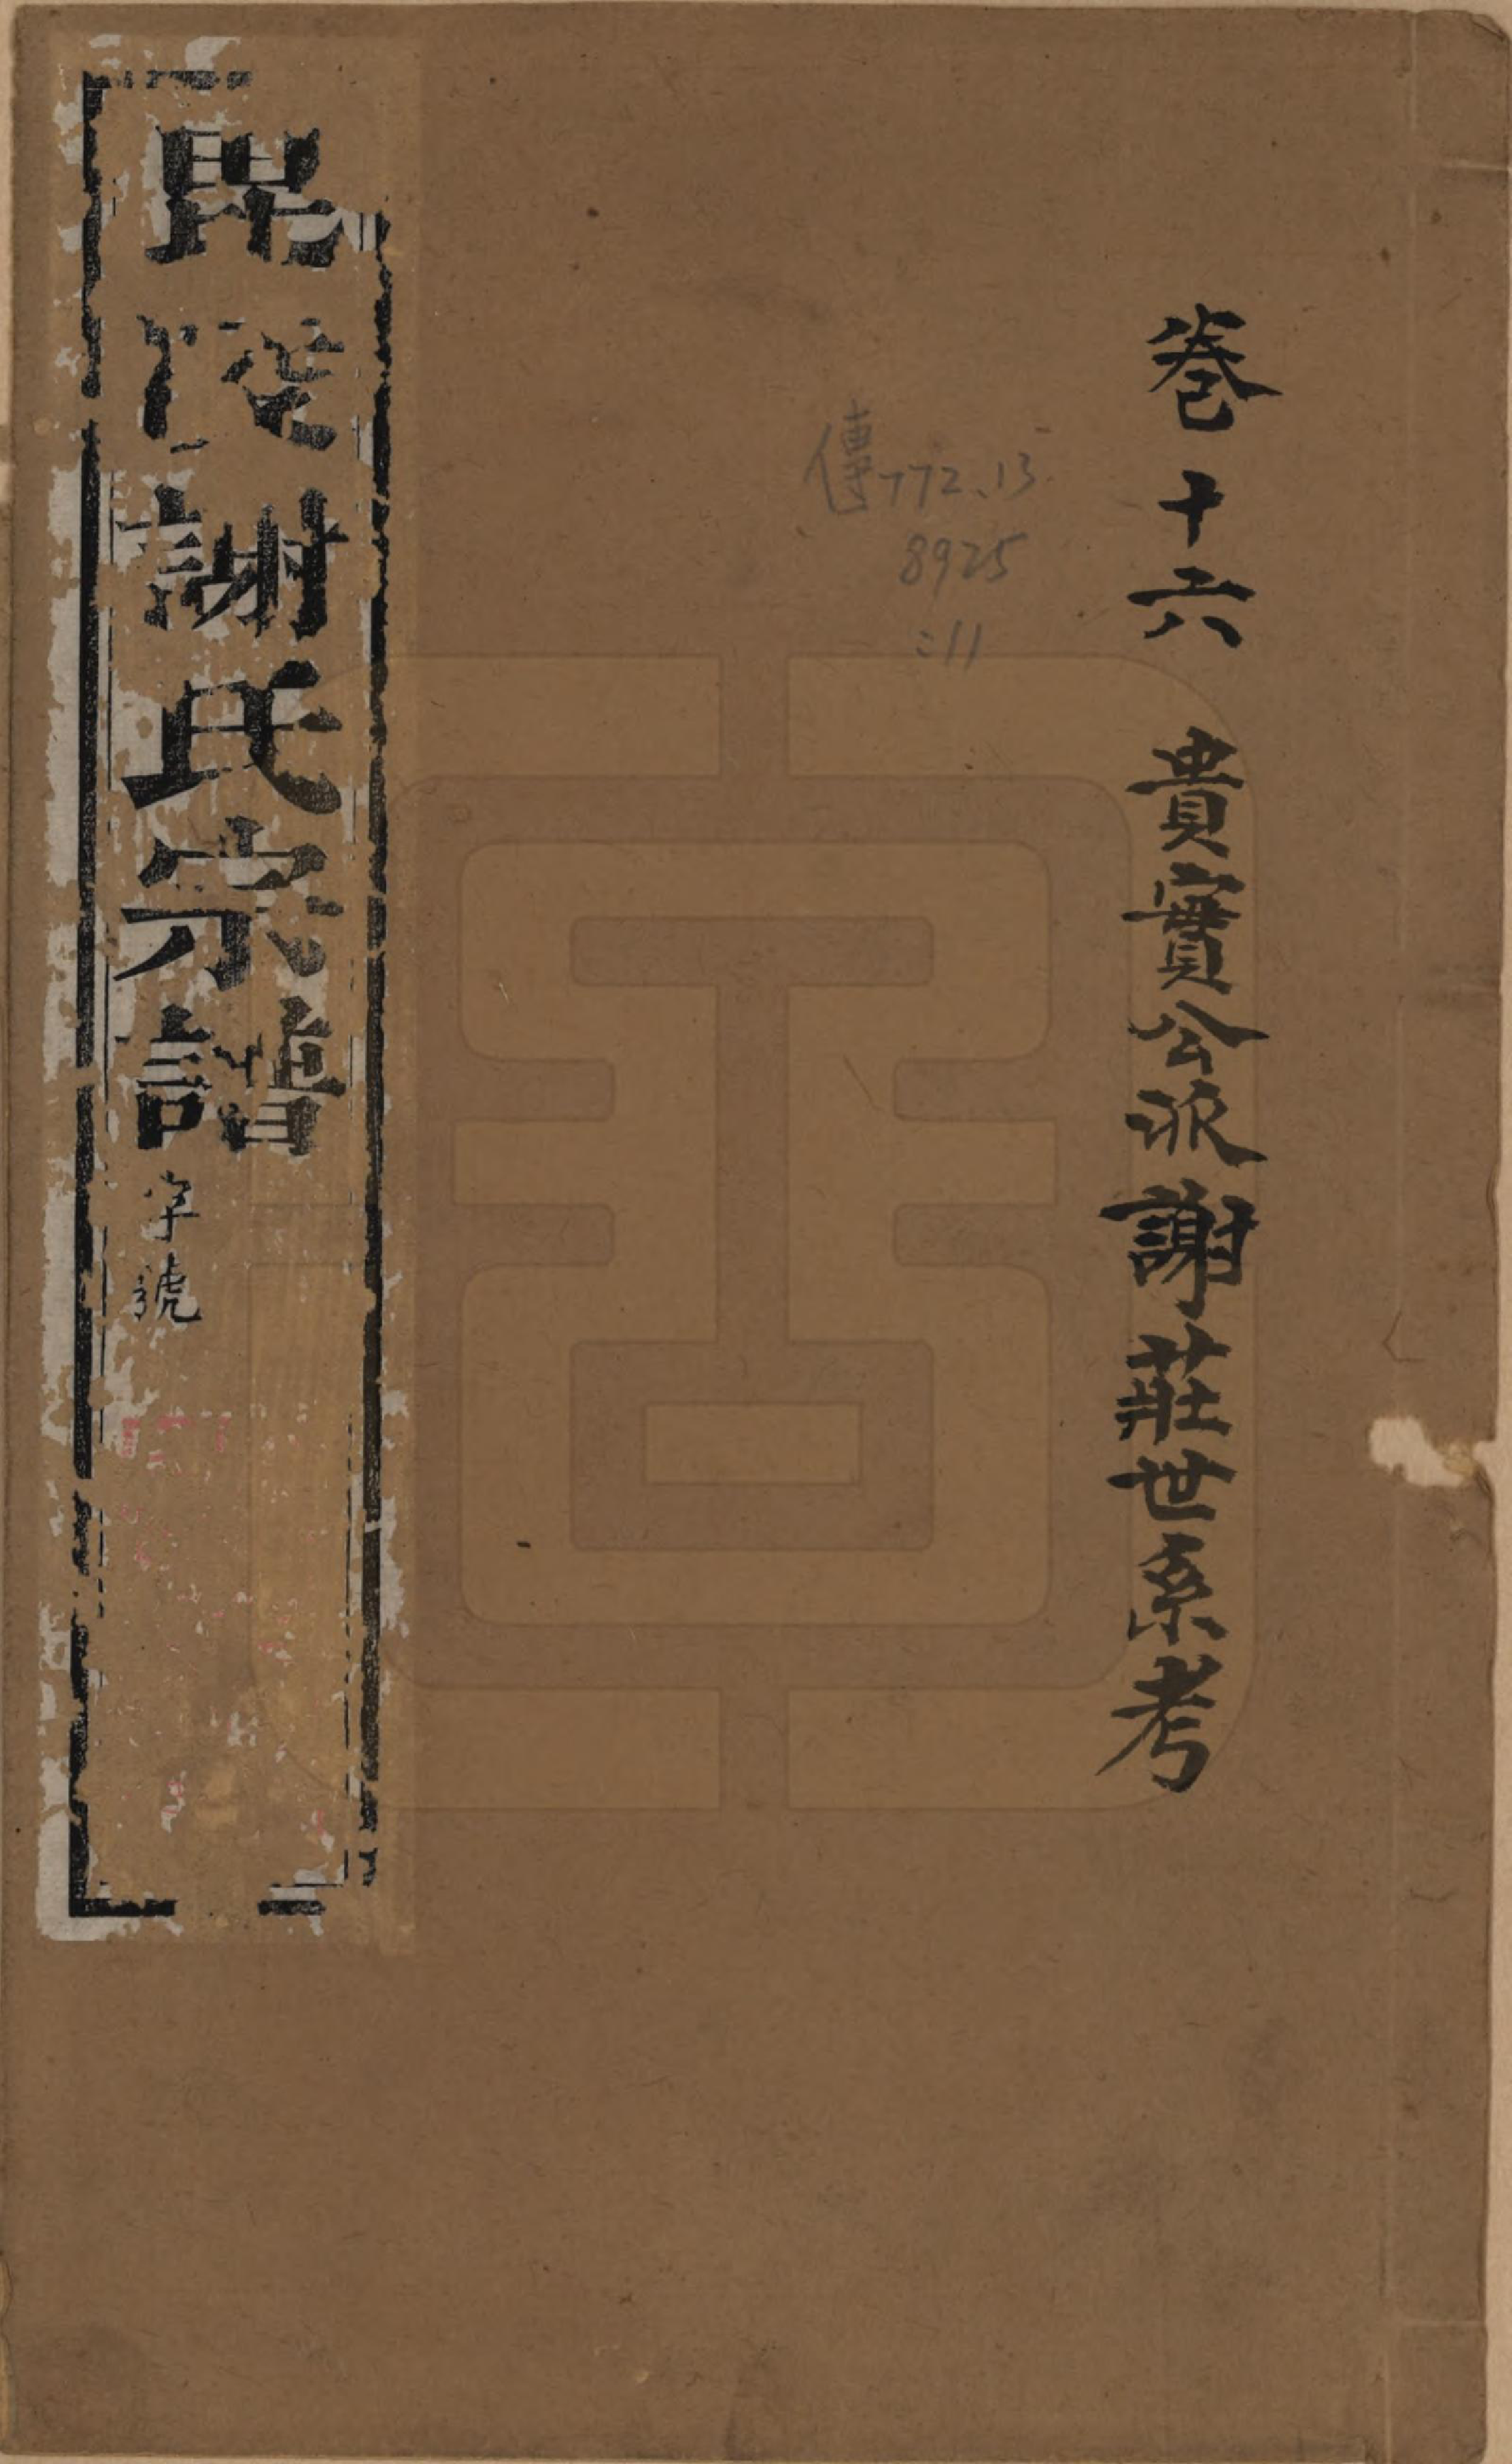 卷十六 貴實公派謝莊世系考
傳772.13
8925
:11
毘陵謝氏宗譜
字號